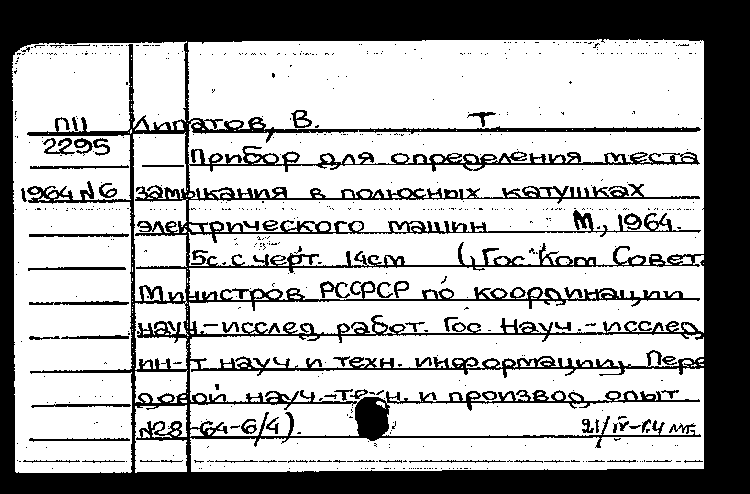 ПII Липатов, В. Т.
2295 Прибор для определения места
1964 N6 замыкания в полюсных катушках
электрического машин М., 1964.
5с. с черт. 14см („Гос. Ком Совет.
Министров РСФСР по координации
науч.-исслед. работ. Гос. Науч.-исслед.
ин-т науч. и техн. информации. Пере
довой науч.-техн. и производ. опыт
N28-64-6/4).